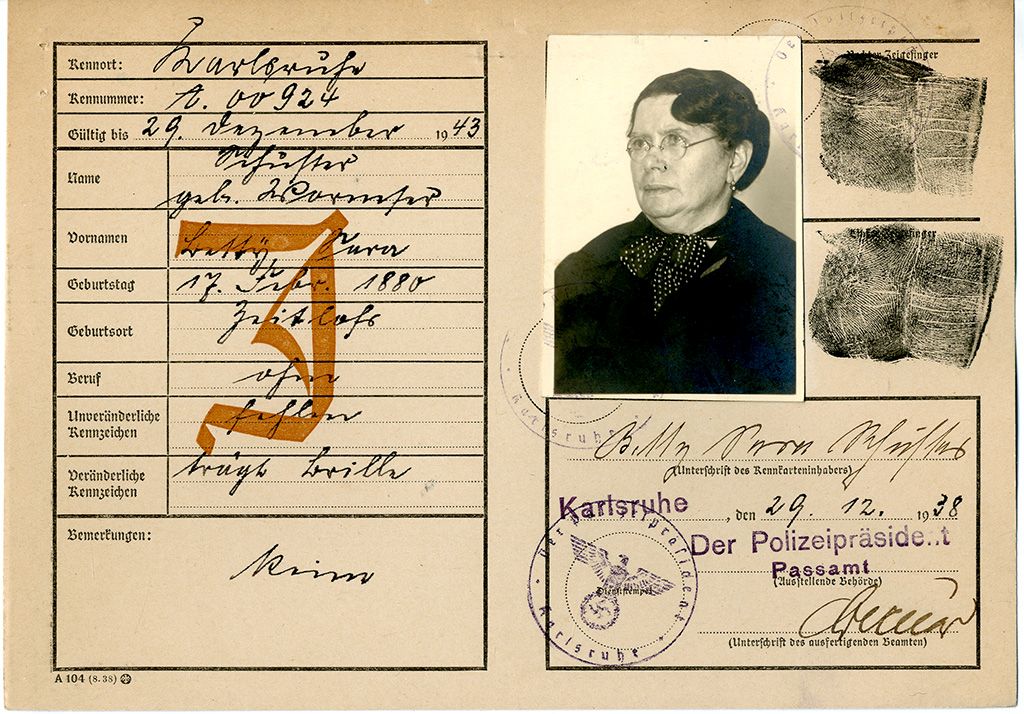 Kennort: Karlsruhe
Kennummer: A. 00924
Gültig bis 29. Dezember 1943
Name Schuster
geb. Wormser
Vornamen Betty Sara
Geburtstag 17. Febr. 1880
Geburtsort Zeitlofs
Beruf ohne
Unveränderliche
Kennzeichen fehlen
Veränderliche
Kennzeichen trägt Brille
Bemerkungen:
Keine
J
A 104 (8. 38)
Rechter Zeigefinger
Linker Zeigefinger
Betty Sara Schuster
(Unterschrift des Kennkarteninhabers)
Karlsruhe, den 29. 12. 1938
Der Polizeipräsident
Passamt
(Ausstellende Behörde)
Dienststempel
Der Polizeipräsident
Karlsruhe
(Unterschrift des ausfertigenden Beamten)